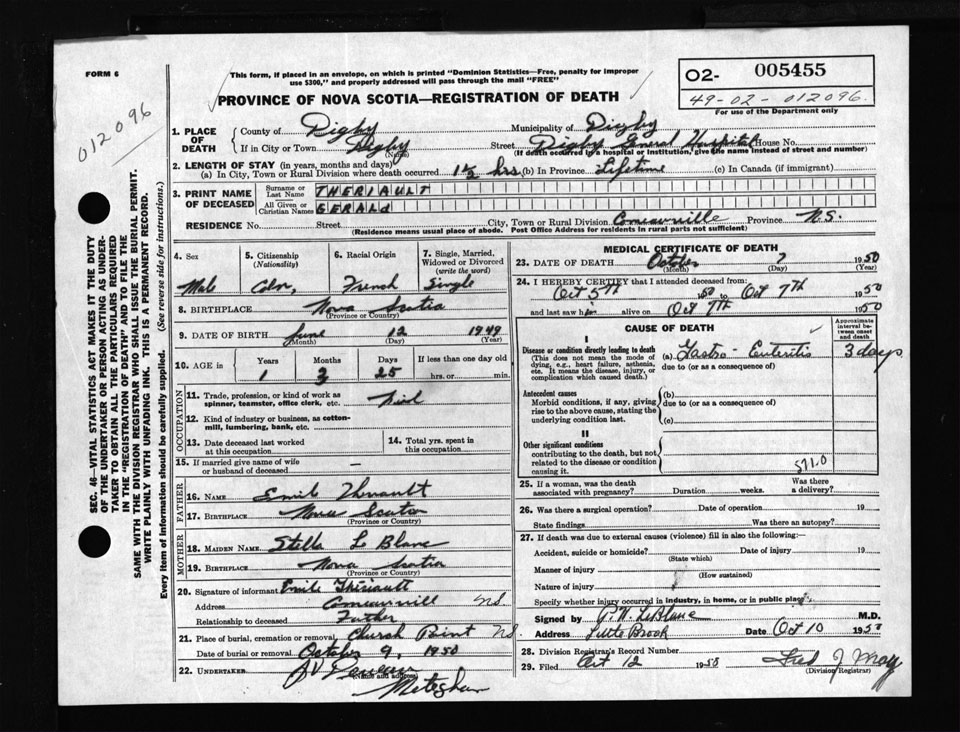 FORM 6
This form, if placed in an envelope, on which is printed "Dominion Statistics—Free, penalty for improper
use $300," and properly addressed will pass through the mail "FREE"
O2- 005455
49-02-012096
For use of the Department only
012096
PROVINCE OF NOVA SCOTIA—REGISTRATION OF DEATH
1. PLACE OF DEATH
County of Digby Municipality of Digby
If in City or Town Digby (Name) Street Digby General Hospital House No.
(If death occurred in a hospital or institution, give the name instead of street and number)
2. LENGTH OF STAY (in years, months and days)
(a) In City, Town or Rural Division where death occurred 1½ hrs (b) In Province Lifetime (c) In Canada (if immigrant)
3. PRINT NAME OF DECEASED
Surname or Last Name THERIAULT
All Given or Christian Names GERALd
RESIDENCE No. Street City, Town or Rural Division Comeauville Province N.S.
(Residence means usual place of abode. Post Office Address for residents in rural parts not sufficient)
SEC. 46—VITAL STATISTICS ACT MAKES IT THE DUTY
OF THE UNDERTAKER OR PERSON ACTING AS UNDER-
TAKER TO OBTAIN ALL THE PARTICULARS REQUIRED
IN THE "REGISTRATION OF DEATH" AND TO FILE THE
SAME WITH THE DIVISION REGISTRAR WHO SHALL ISSUE THE BURIAL PERMIT.
WRITE PLAINLY WITH UNFADING INK. THIS IS A PERMANENT RECORD.
Every item of information should be carefully supplied. (See reverse side for instructions.)
4. Sex Male
5. Citizenship (Nationality)
6. Racial Origin French
7. Single, Married, Widowed or Divorced (write the word) Single
8. BIRTHPLACE Nova Scotia
(Province or Country)
9. DATE OF BIRTH June 12 1949
(Month) (Day) (Year)
10. AGE in Years Months Days If less than one day old
1 3 25 hrs. or min.
OCCUPATION
11. Trade, profession, or kind of work as
spinner, teamster, office clerk, etc.
12. Kind of industry or business, as cotton-
mill, lumbering, bank, etc.
13. Date deceased last worked
at this occupation
14. Total yrs. spent in
this occupation
15. If married give name of wife
or husband of deceased —
FATHER
16. NAME Emile Theriault
17. BIRTHPLACE Nova Scotia
(Province or Country)
MOTHER
18. MAIDEN NAME Stella Le Blanc
19. BIRTHPLACE Nova Scotia
(Province or Country)
20. Signature of informant Emile Thériault
Address Comeauvill NS
Relationship to deceased Father
21. Place of burial, cremation or removal Church Point NS
Date of burial or removal October 9, 1950
22. UNDERTAKER
(Name and address)
Meteghan
MEDICAL CERTIFICATE OF DEATH
23. DATE OF DEATH October 7 1950
(Month) (Day) (Year)
24. I HEREBY CERTIFY that I attended deceased from:
Oct 5th 50 to Oct 7th 1950
and last saw him alive on Oct 7th 1950
CAUSE OF DEATH
Approximate interval between onset and death
I
Disease or condition directly leading to death (a) Gastro-Enteritis 3 days
(This does not mean the mode of
dying, e.g., heart failure, asthenia,
etc. It means the disease, injury, or
complication which caused death.)
due to (or as a consequence of)
Antecedent causes (b)
Morbid conditions, if any, giving
rise to the above cause, stating the
underlying condition last.
due to (or as a consequence of)
(c)
II
Other significant conditions
contributing to the death, but not
related to the disease or condition
causing it.
571.0
25. If a woman, was the death
associated with pregnancy? Duration weeks. Was there a delivery?
26. Was there a surgical operation? Date of operation 19
State findings Was there an autopsy?
27. If death was due to external causes (violence) fill in also the following:—
Accident, suicide or homicide? Date of injury 19
(State which)
Manner of injury
(How sustained)
Nature of injury
Specify whether injury occurred in industry, in home, or in public place
Signed by P.W. LeBlanc M.D.
Address Little Brook Date Oct 10 1950
28. Division Registrar's Record Number
29. Filed Oct 12 1950 Fred J May
(Division Registrar)